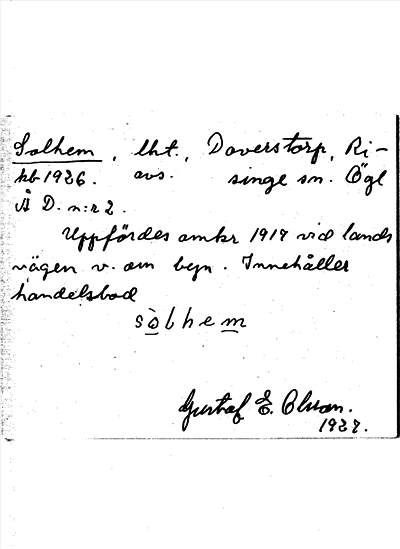 Solhem, lht., Doverstorp, Ri-
kb 1926. avs. singe sn. Ögl
Å D. n:r 2.
Uppfördes omkr 1917 vid lands
vägen v. om byn. Innehåller
handelsbod
sòlhem
Gustaf E. Olsson.
1927.